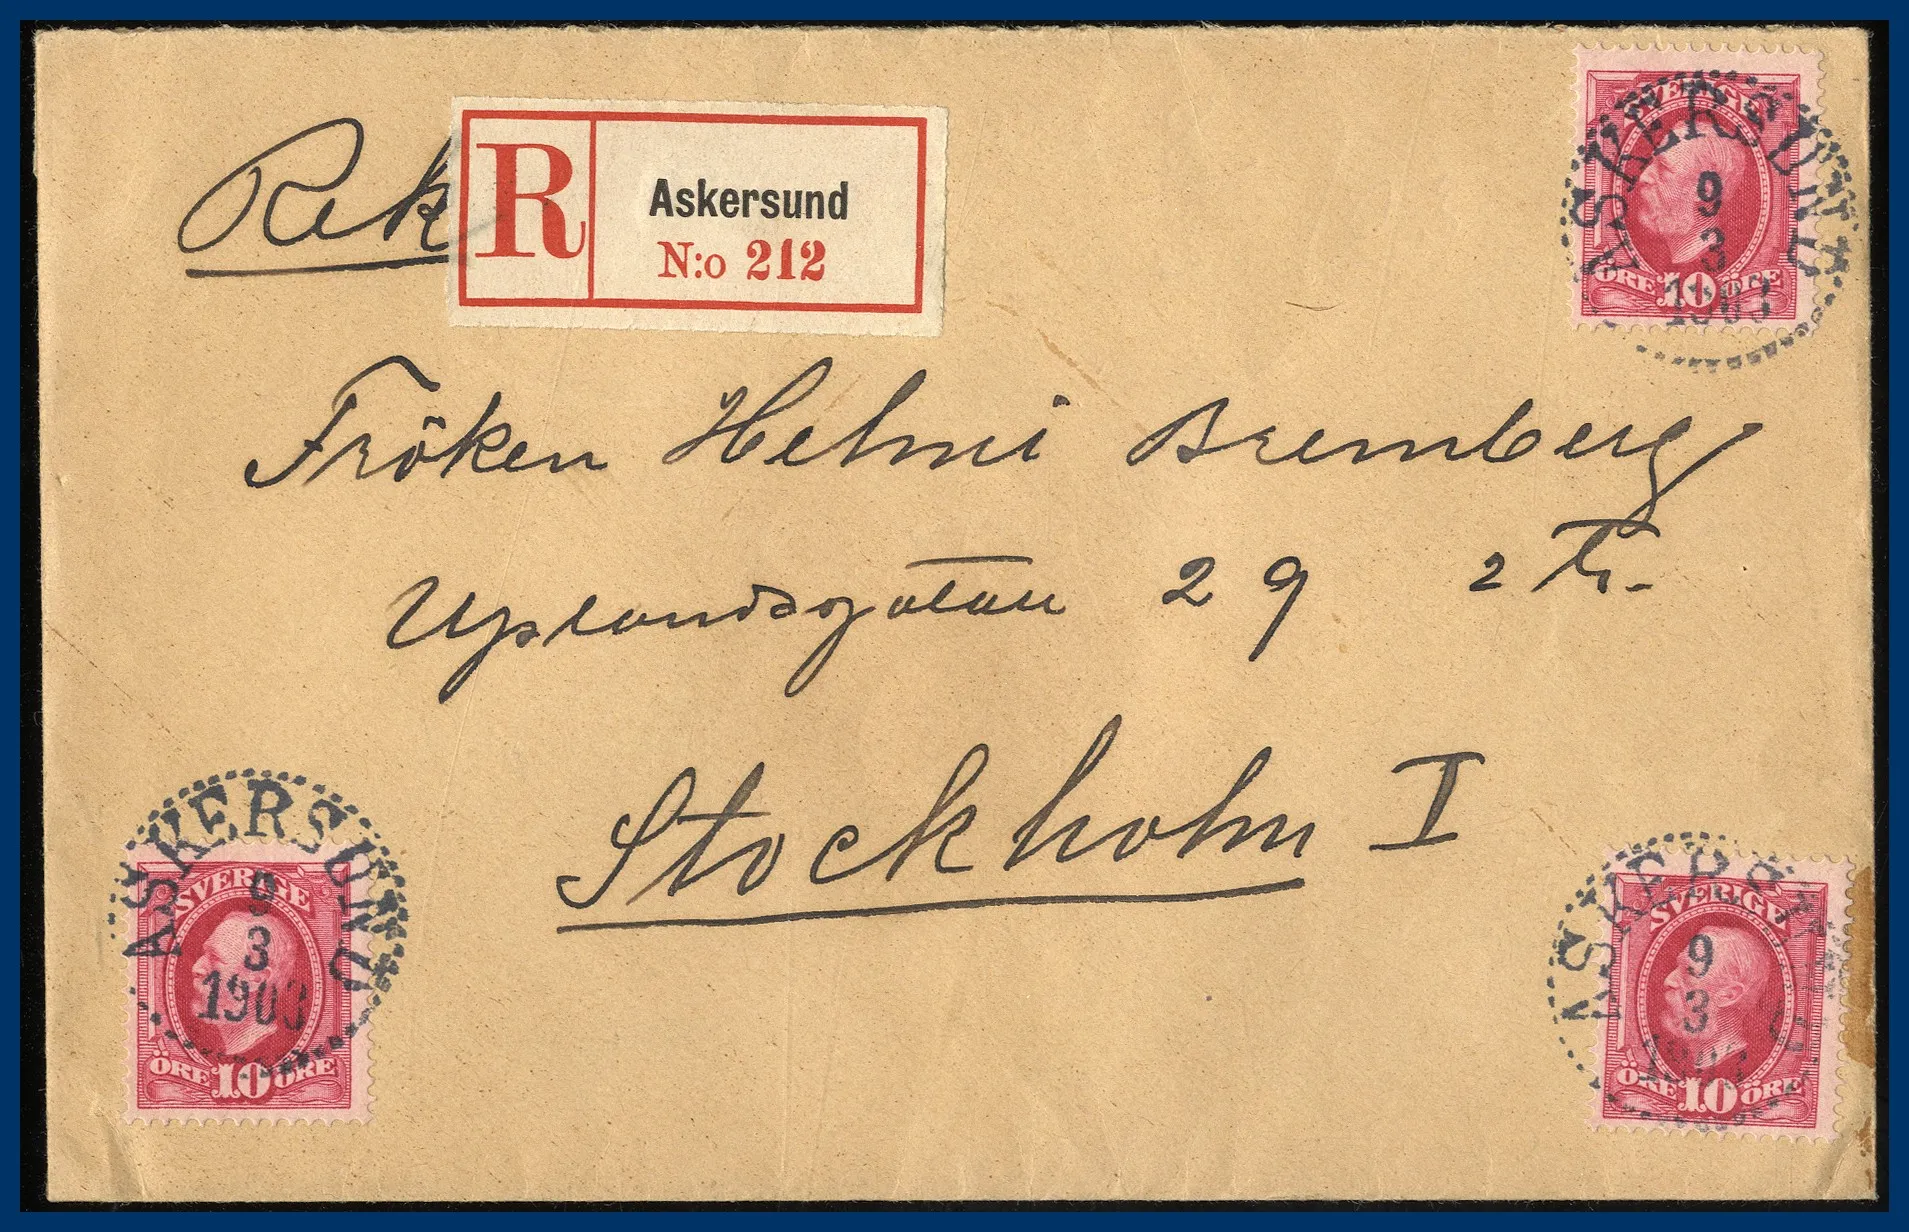 Rek
R Askersund
N:o 212
SVERIGE
ASKERSUND
9
3
1903
ÖRE 10 ÖRE
Fröken Helmi Bremberg
Uplandsgatan 29 2 tr.
Stockholm I
ASKERSUND
SVERIGE
9
3
1903
ÖRE 10 ÖRE
ASKERSUND
SVERIGE
9
3
1903
ÖRE 10 ÖRE